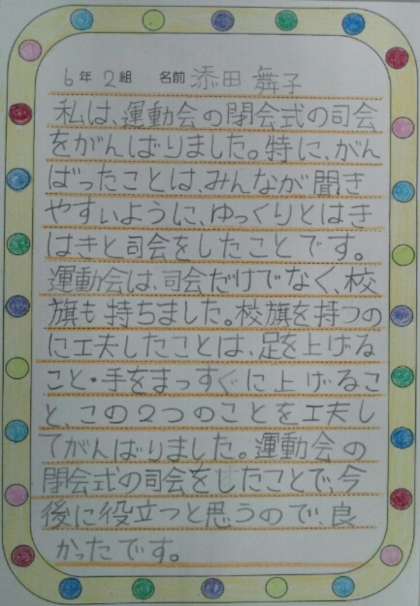 6年2組 名前 添田 舞子
私は、運動会の閉会式の司会
をがんばりました。特に、がん
ばったことは、みんなが聞き
やすいように、ゆっくりとはき
はきと司会をしたことです。
運動会は、司会だけでなく、校
旗も持ちました。校旗を持つの
に工夫したことは、足を上げる
こと・手をまっすぐに上げるこ
と、この2つのことを工夫し
てがんばりました。運動会の
閉会式の司会をしたことで、今
後に役立つと思うので、良
かったです。